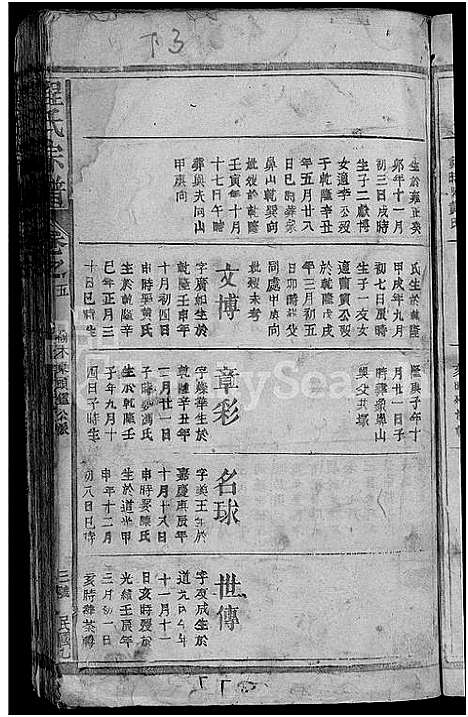 下3
程氏宗譜
卷之五
生於雍正癸
卯年十一月
初三日戌時
生子二獻博
女適李公叕
于乾隆辛丑
年五月廿八
日巳時葬象
鼻山乾巽向
妣叕於乾隆
壬寅年十月
十七日午時
葬與夫同山
甲庚向
氏生於乾隆
甲戌年九月
初七日辰時
生子一友女
適蕭黃公叕
於乾隆戊戌
年三月初五
日卯時葬父
同處甲庚向
妣叕未考
隆庚子年十
月廿一日子
時葬象鼻山
與父共塚
文博
字廣如生於
乾隆壬申年
十月初四日
申時娶黃氏
生於乾隆己
巳年正月三
十日巳時生
章彩
字燦華生於
乾隆辛丑年
二月廿一日
子時娶馮氏
生於乾隆壬
子年九月十
四日子時生
名球
字美玉生於
嘉慶庚辰年
十月十八日
申時娶陳氏
生於道光甲
申年十二月
初八日巳時
世傳
字友成生於
十一月十一
日亥時歿於
光緒壬辰年
三月初一日
三號
民國九